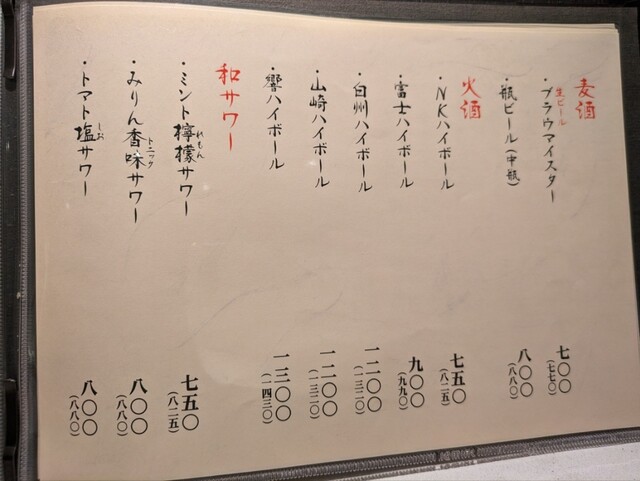 麦酒
生ビール
・ブラウマイスター 七〇〇(七七〇)
・瓶ビール(中瓶) 八〇〇(八八〇)
火酒
・NKハイボール 七五〇(八二五)
・富士ハイボール 九〇〇(九九〇)
・白州ハイボール 一二〇〇(一三二〇)
・山崎ハイボール 一二〇〇(一三二〇)
・響ハイボール 一三〇〇(一四三〇)
和サワー
・ミント檸檬サワー 七五〇(八二五)
れもん
・みりん香味サワー 八〇〇(八八〇)
トニック
・トマト塩サワー 八〇〇(八八〇)
しお